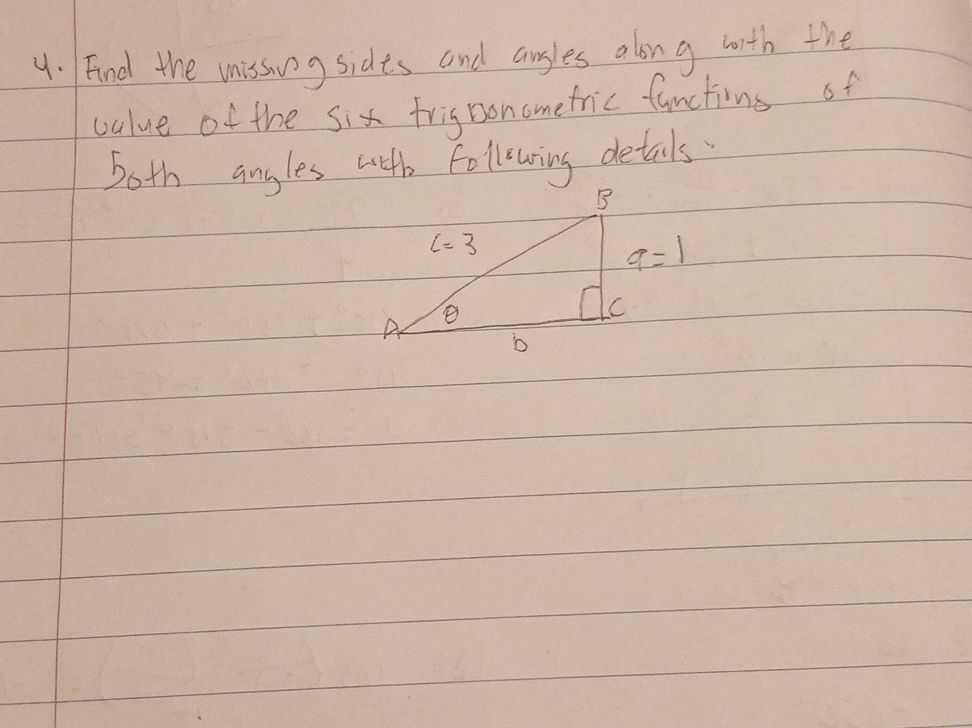 4. Find the missing sides and angles along with the
value of the six trigonometric functions of
both angles with following details.
B
c=3
a=1
θ
C
A
b